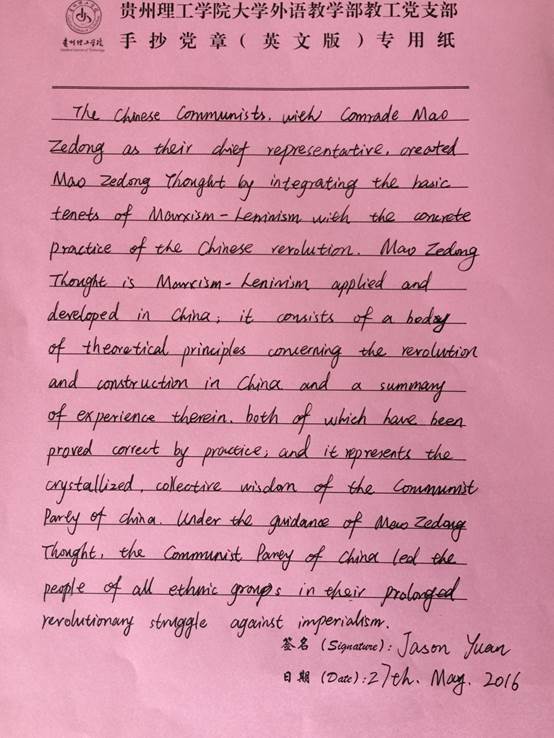 贵州理工学院大学外语教学部教工党支部
贵州理工学院
手抄党章(英文版)专用纸
The Chinese Communists, with Comrade Mao
Zedong as their chief representative, created
Mao Zedong Thought by integrating the basic
tenets of Marxism-Leninism with the concrete
practice of the Chinese revolution. Mao Zedong
Thought is Marxism-Leninism applied and
developed in China; it consists of a body
of theoretical principles concerning the revolution
and construction in China and a summary
of experience therein, both of which have been
proved correct by practice; and it represents the
crystallized, collective wisdom of the Communist
Party of China. Under the guidance of Mao Zedong
Thought, the Communist Party of China led the
people of all ethnic groups in their prolonged
revolutionary struggle against imperialism.
签名(Signature): Jason Yuan
日期(Date): 27th. May. 2016